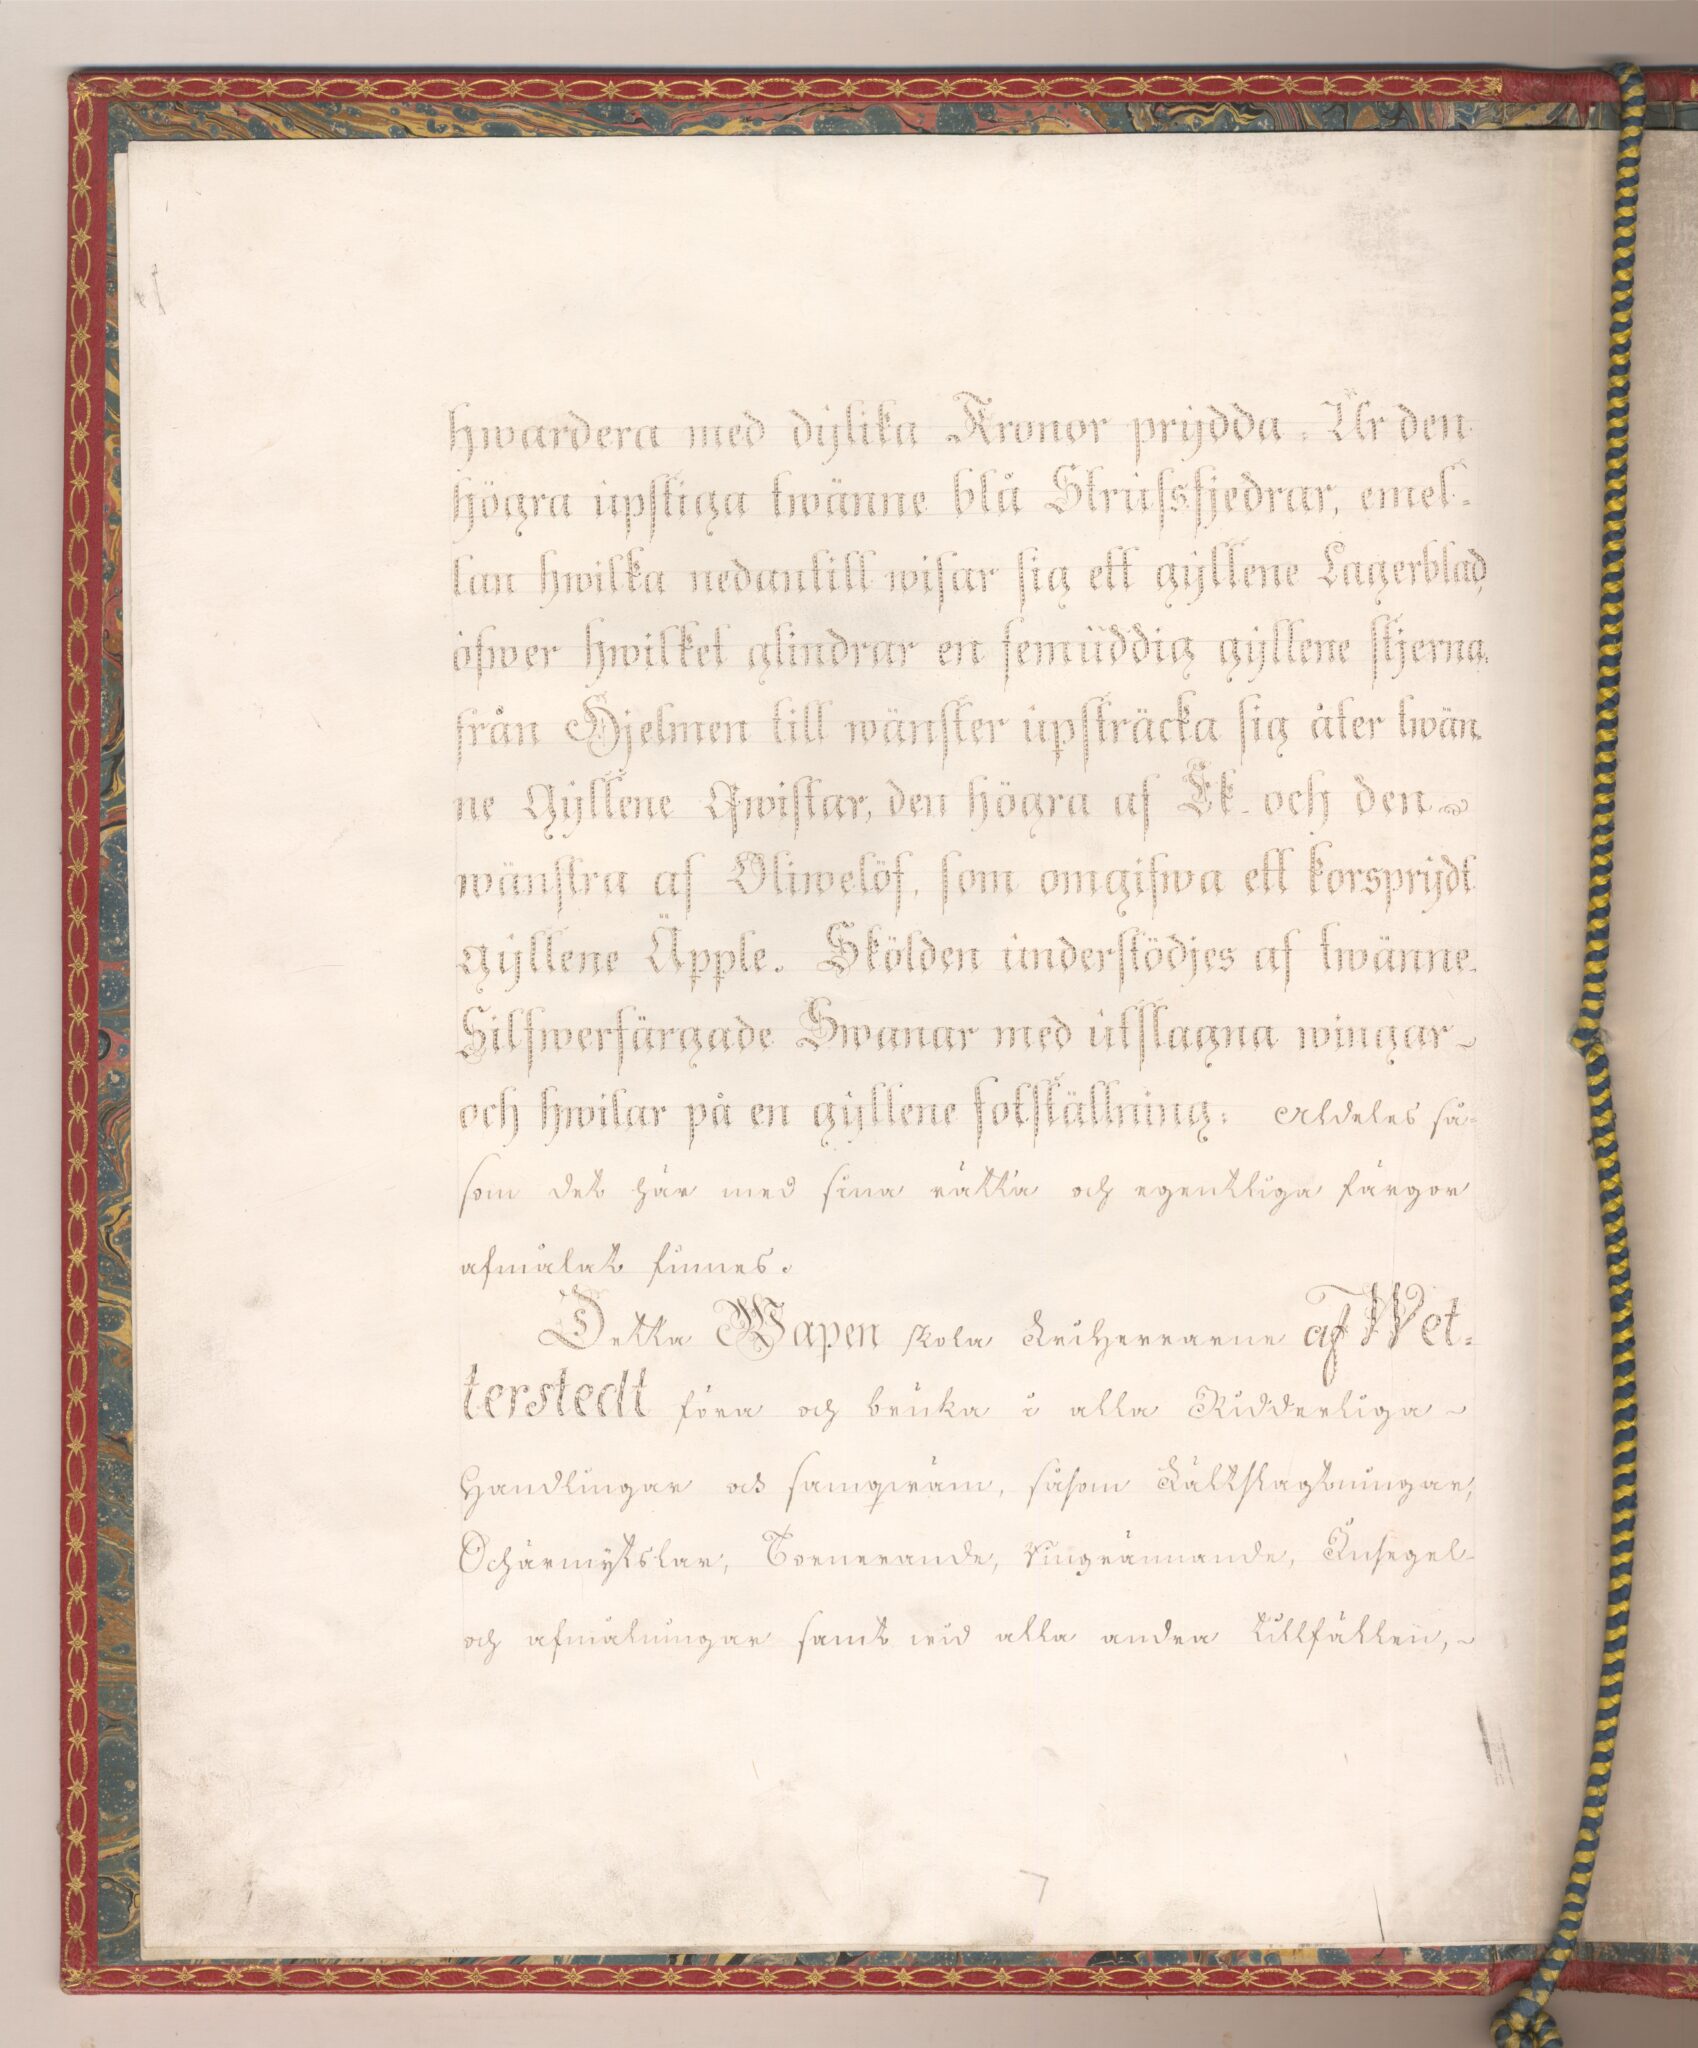 hwardera med dylika Kronor prydda. Ur den
högra upstiga twänne blå Strussfjedrar, emel-
lan hwilka nedantill wisar sig ett gyllene Lagerblad,
öfwer hwilket glindrar en femuddig gyllene stjerna.
från Hjelmen till wänster upsträcka sig åter twän-
ne Gyllene Qwistar, den högra af Ek- och den
wänstra af Oliwelöf, som omgifwa ett korsprydt
gyllene Äpple. Skölden understödjes af twänne
Silfwerfärgade Swanar med utslagna wingar
och hwilar på en gyllene fotställning: Aldeles så-
som det här med sina rätta och egentliga färgor
afmålat finnes.
Detta Wapen skola FriHerrarne af Wet-
terstedt föra och bruka i alla Ridderliga
Handlingar och samqväm, såsom Fältslagtningar,
Schärmytslar, Tornerande, ringrännande, Insegel
och afmålningar samt wid alla andra tillfällen,